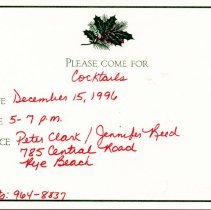 PLEASE COME FOR
Cocktails
TE December 15, 1996
E 5-7 p.m.
CE Peter Clark / Jennifer Reed
785 Central Road
Rye Beach
p: 964-8837